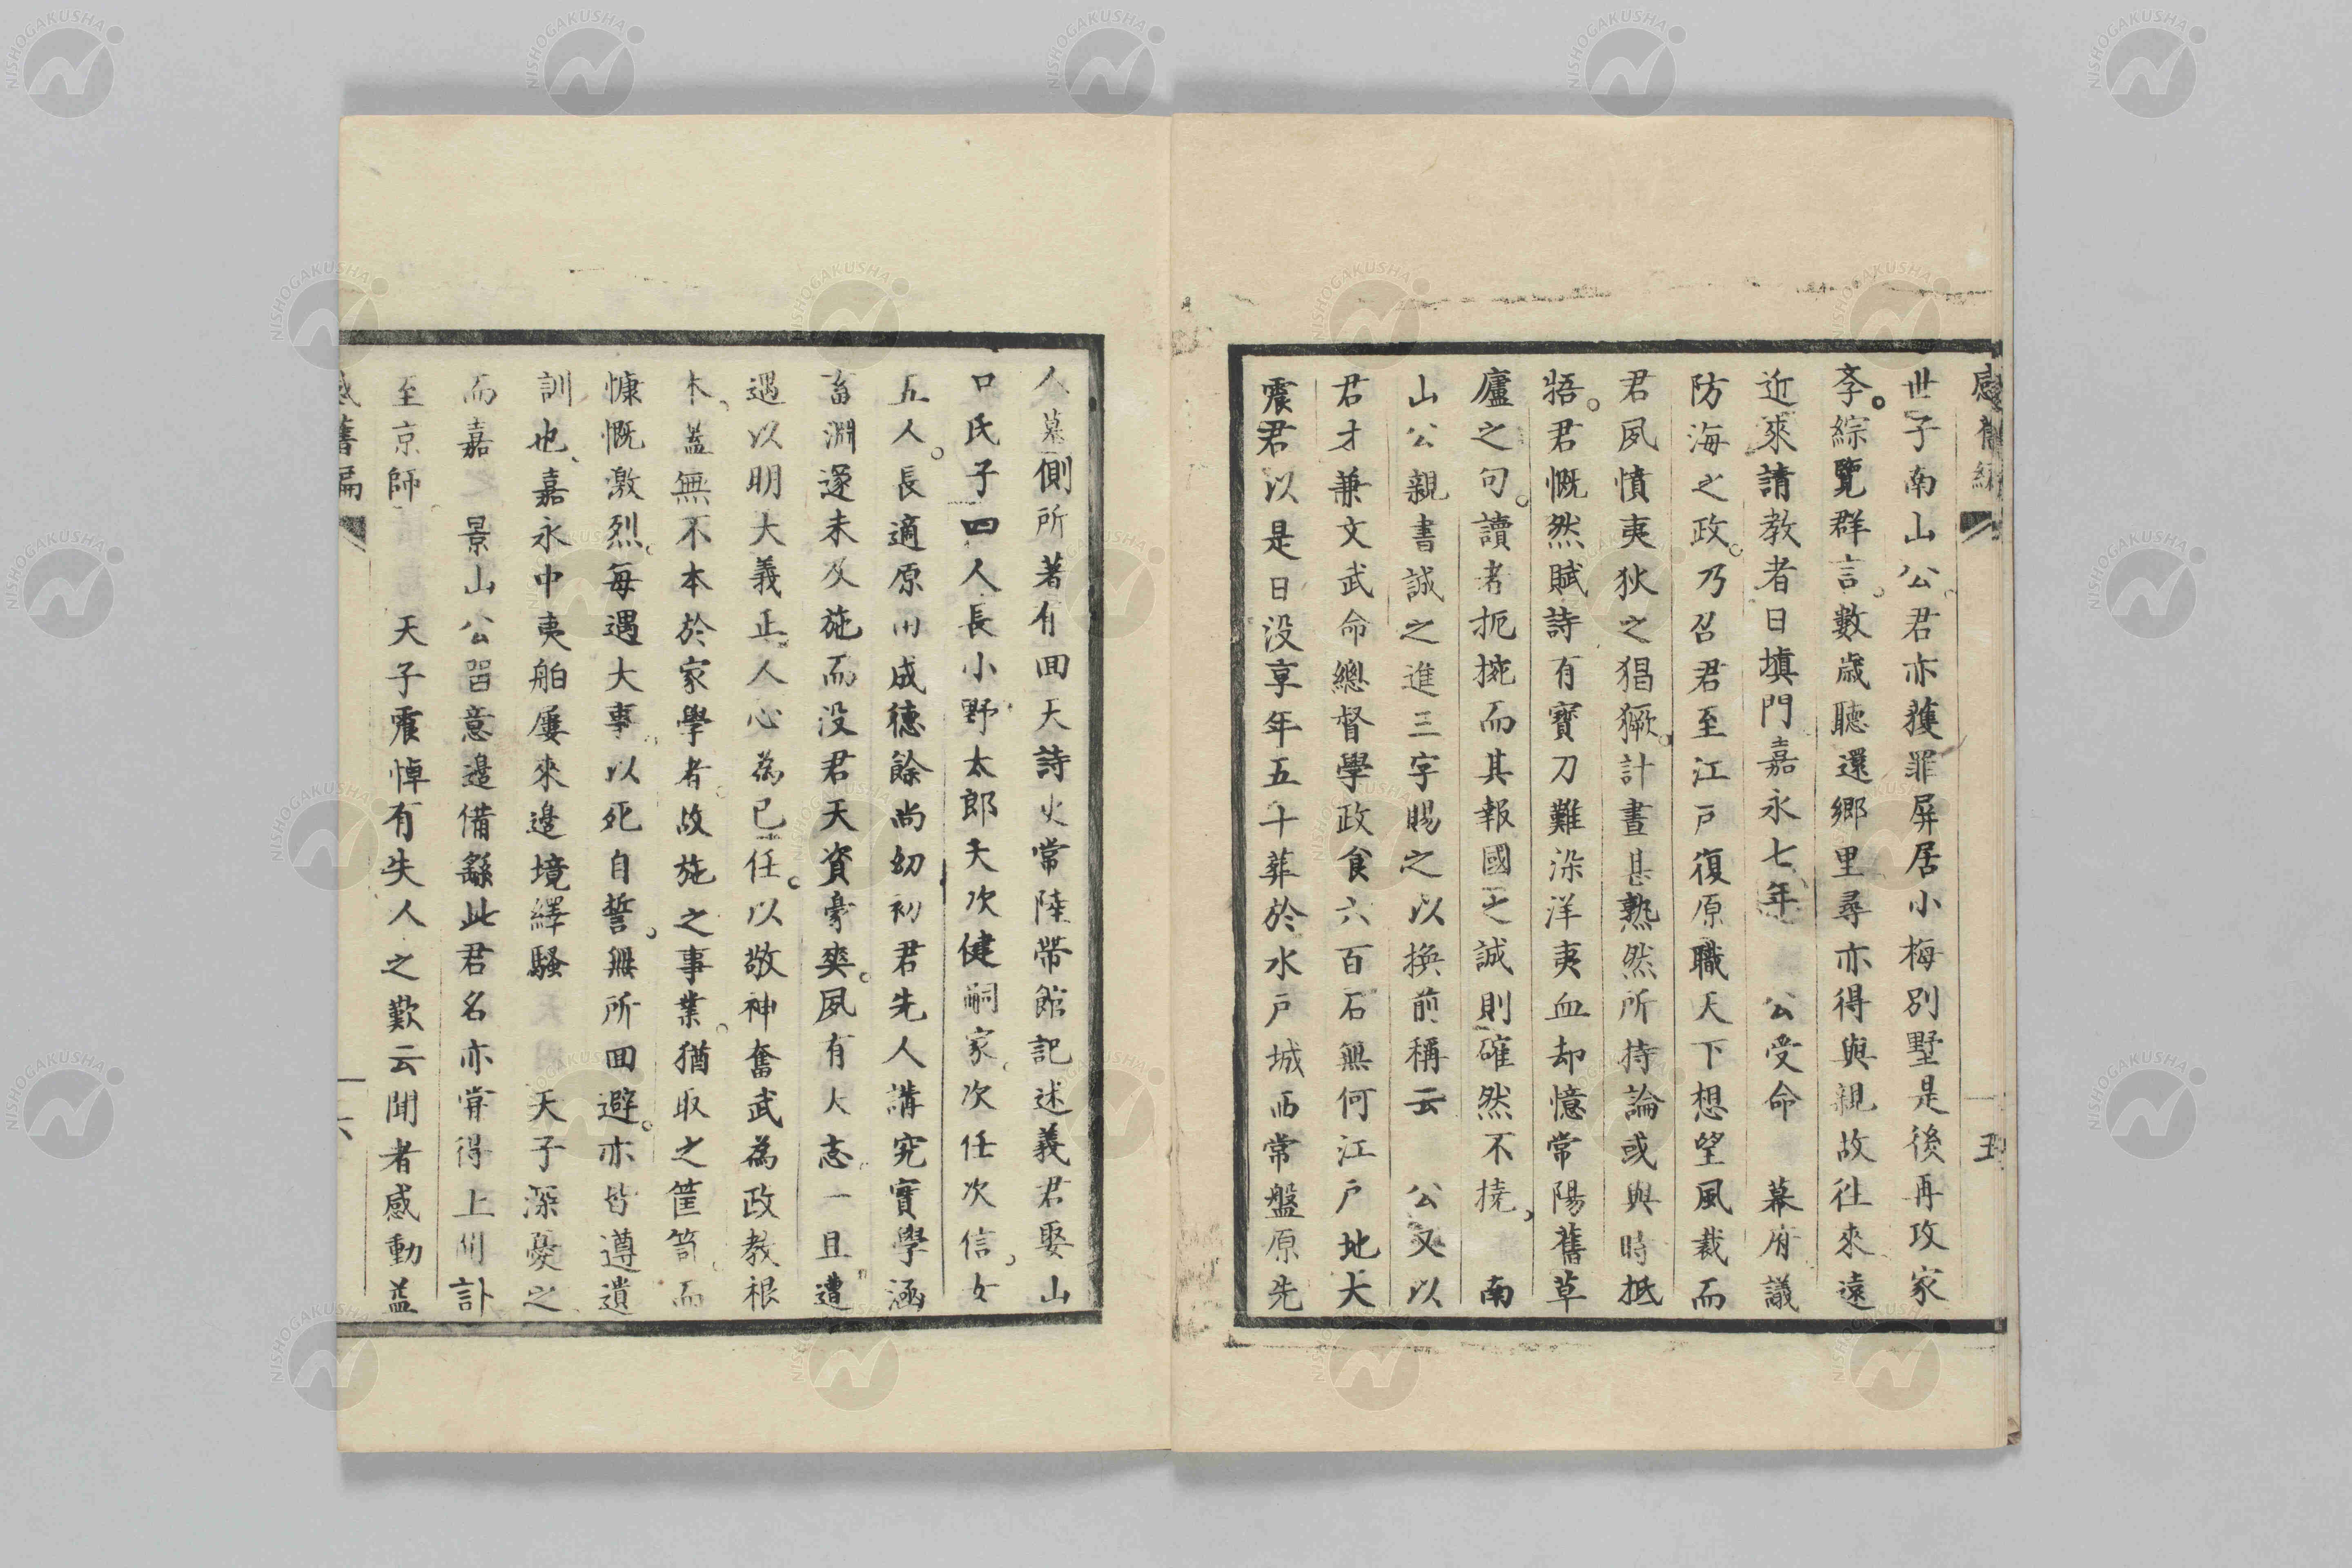 感舊編
十五
世子南山公君亦獲罪屏居小梅別墅是後再攻家
斈綜覽群言數歲聽還鄉里尋亦得與親故徃來遠
近來請教者日填門嘉永七年　公受命　幕府議
防海之政乃召君至江戸復原職天下想望風裁而
君夙憤夷狄之猖獗計畫甚熟然所持論或與時抵
牾君慨然賦詩有寶刀難染洋夷血却憶常陽舊草
廬之句讀者扼捥而其報國之誠則確然不撓　南
山公親書誠之進三字賜之以換前稱云　公又以
君才兼文武命總督學政食六百石無何江戸地大
震君以是日没享年五十葬於水戸城西常盤原先
人墓側所著有回天詩史常陸帶館記述義君娶山
口氏子四人長小野太郎夭次健嗣家次任次信女
五人長適原田成德餘尚幼初君先人講究實學涵
畜淵邃未及施而没君天資豪爽夙有大志一旦遭
遇以明大義正人心為已任以敬神奮武為政教根
本蓋無不本於家學者故施之事業猶取之筐笥而
慷慨激烈每遇大事以死自誓無所回避亦皆遵遺
訓也嘉永中夷舶屢來邊境繹騷　天子深憂之
而嘉　景山公留意邊備繇此君名亦甞得上聞訃
至京師　天子震悼有失人之歎云聞者感動益
感舊編
十六
NISHOGAKUSHA